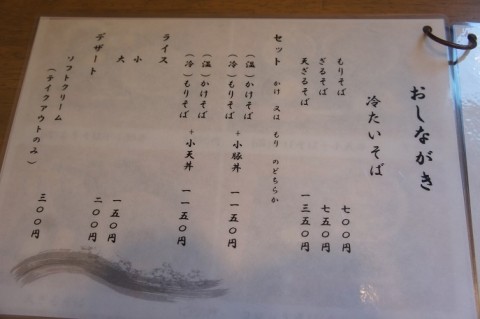 おしながき
冷たいそば
もりそば 七〇〇円
ざるそば 七五〇円
天ざるそば 一三五〇円
セット かけ 又は もり のどちらか
(温)かけそば
(冷)もりそば +小豚丼 一一五〇円
(温)かけそば
(冷)もりそば +小天丼 一一五〇円
ライス
小 一五〇円
大 二〇〇円
デザート
ソフトクリーム 三〇〇円
(テイクアウトのみ)